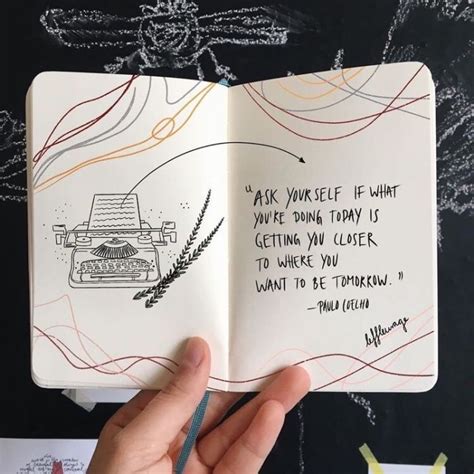 "ASK YOURSELF IF WHAT
YOU'RE DOING TODAY IS
GETTING YOU CLOSER
TO WHERE YOU
WANT TO BE TOMORROW."
— PAULO COELHO